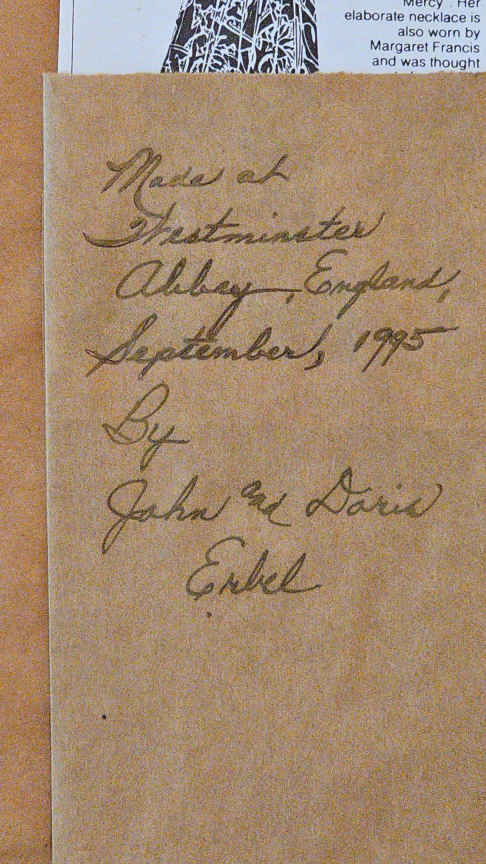 Mercy". Her
elaborate necklace is
also worn by
Margaret Francis
and was thought
Made at
Westminster
Abbey, England,
September, 1995
By
John and Doris
Erbel